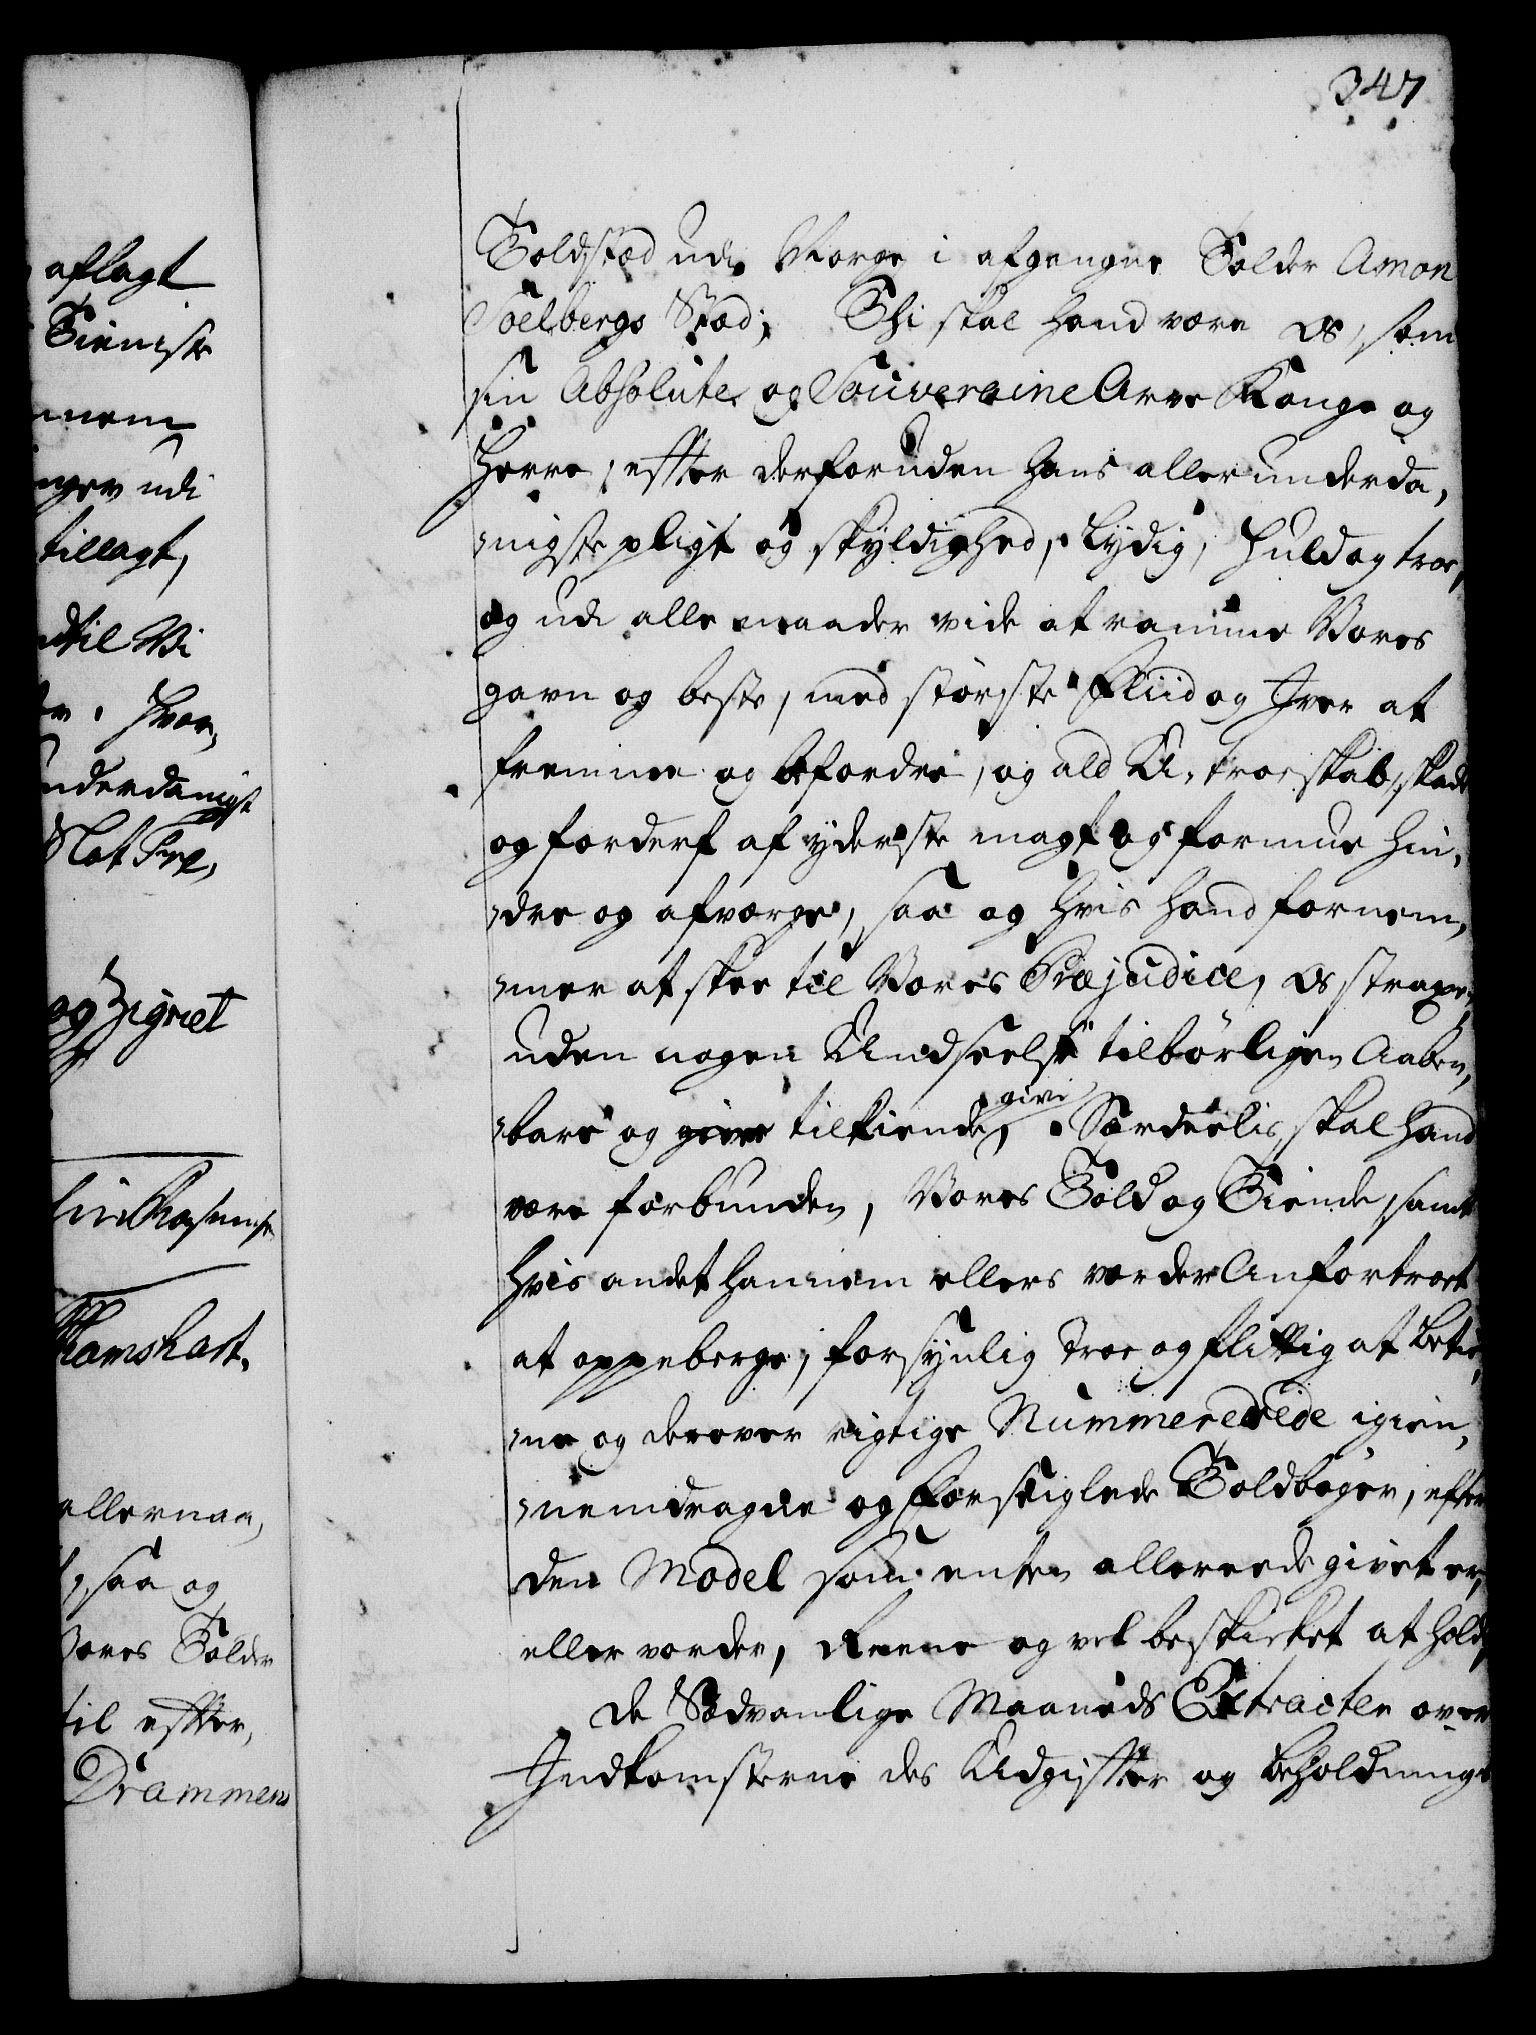 347
Toldstæd udi Norge i afgangne Tolder Amon
Soelbergs Stæd; Thi skal hand være os, som
sin Absolute og Souveraine Arve Konge og
Herre, effter derforuden hans allerunderda,
nigste pligt og skyldighed, Lydig, Huld og troe,
og udi alle maader vide at ramme Vores
gavn og beste, med største Fliid og Iver at
fremme og befordre, og ald U-troeskab, skade
og forderf af yderste magt og formue hin,
dre og afværge, saa og hvis hand fornem,
mer at skee til Vores Præjudice, os straxen
uden nogen Undseelse tilbørligen Aaben,
bare og give tilkiende, give Særdeelis skal hand
være forbunden, Vores Told og Tiende, samt
hvis andet hannem ellers vorder Anfortroet
at oppeberge, forsynlig troe og flittig at betie,
ne og derover rigtige Nummerede igien,
nemdragne og Forseiglede Toldbøger, efter
den Model som enten allereede givet er,
eller vorder, Reene og vel beskicket at holde,
De Sædvanlige Maaneds Extracter over
Indkomsterne des Udgiffter og beholdninge
aflagt
Tieniste
nnem
nger udi
tillagt,
dtil Vi
Hvor,
nderdanigst
Slot Fre,
og Zignet
allernaa,
saa og
Vores Tolder
til effter,
Drammens